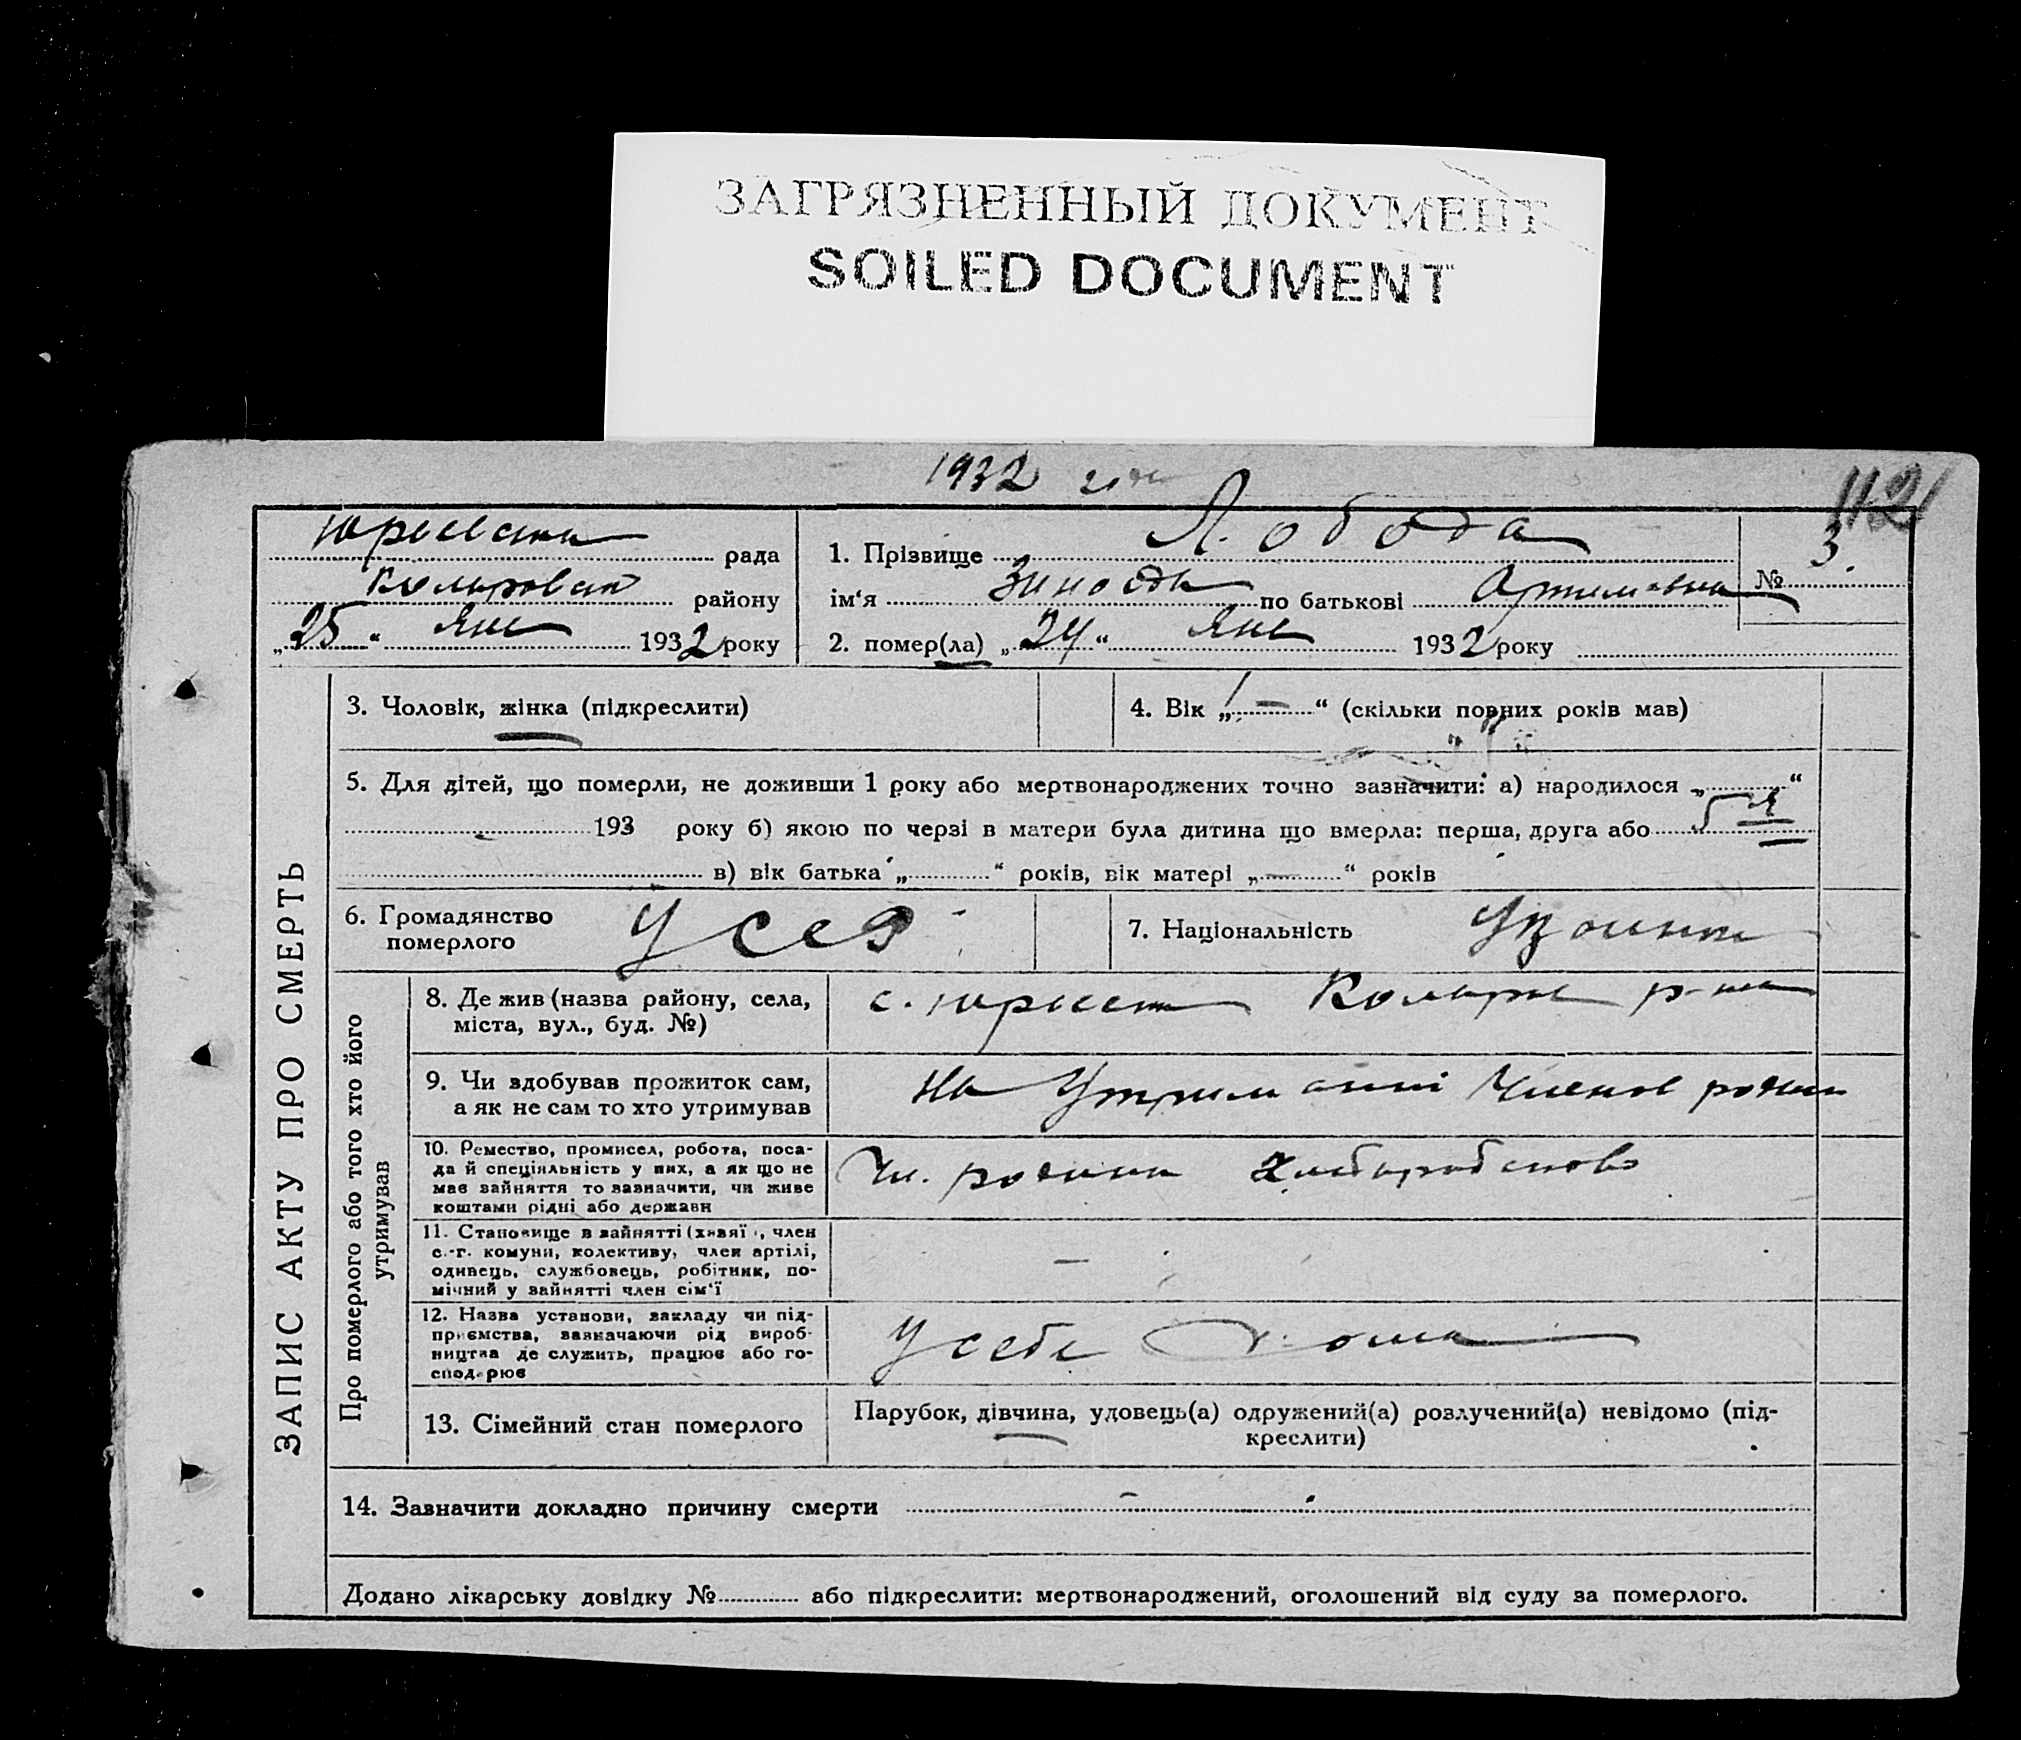 ЗАГРЯЗНЕННЫЙ ДОКУМЕНТ
SOILED DOCUMENT
1932
112
рада
району
„25“ Янв 1932 року
1. Прізвище Лобода
№ 3.
ім‘я по батькові
2. помер(ла) „24“ Янв 1932 року
ЗАПИС АКТУ ПРО СМЕРТЬ
3. Чоловік, жінка (підкреслити)
4. Вік „1 –“ (скільки повних років мав)
5. Для дітей, що померли, не доживши 1 року або мертвонароджених точно зазначити: а) народилося „ “
193 року б) якою по черзі в матери була дитина що вмерла: перша, друга або 5
в) вік батька „ “ років, вік матері „—“ років
6. Громадянство
померлого
УССР
7. Національність
Про померлого або того хто його
утримував
8. Де жив (назва району, села,
міста, вул., буд. №)
с. р-на
9. Чи здобував прожиток сам,
а як не сам то хто утримував
на утриманні членов родини
10. Ремество, промисел, робота, поса-
да й спеціяльність у них, а як що не
має зайняття то зазначити, чи живе
коштами рідні або держави
Чл. родини
11. Становище в зайнятті (хазяї , член
с.-г. комуни, колективу, член артілі,
одивець, службовець, робітник, по-
мічний у зайнятті член сім‘ї
–
12. Назва установи, закладу чи під-
приємства, зазначаючи рід вироб-
ництва де служить, працює або го-
сподарює
У себе дома
13. Сімейний стан померлого
Парубок, дівчина, удовець(а) одружений(а) розлучений(а) невідомо (під-
креслити)
14. Зазначити докладно причину смерти –
Додано лікарську довідку № або підкреслити: мертвонароджений, оголошений від суду за померлого.